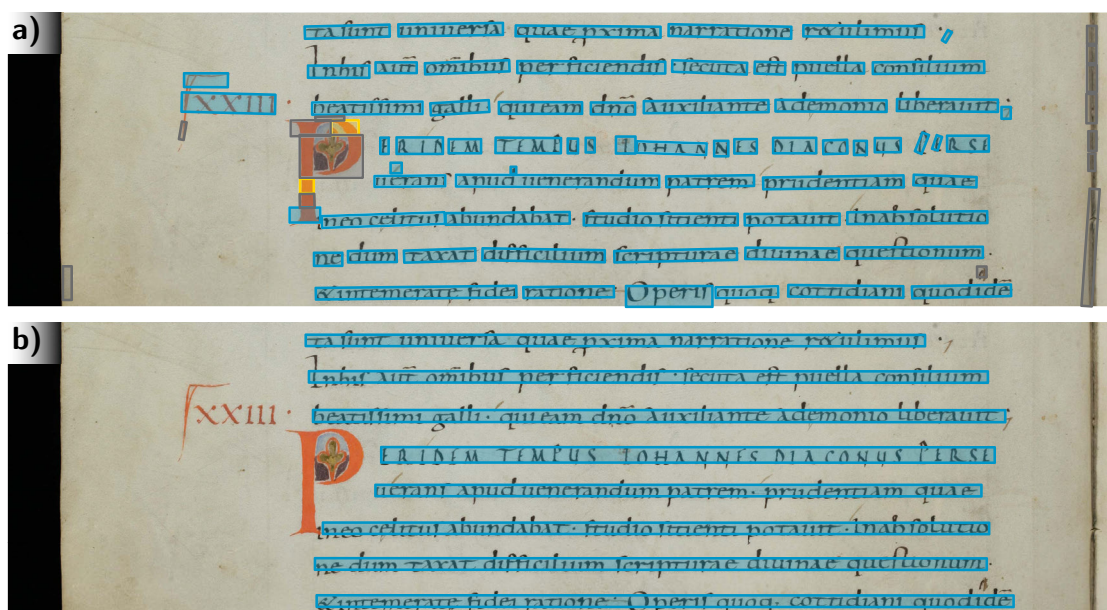 a)
ta sunt uniuersa quae pxima narratione r&ulimus ·
Inhis aūt om̄ibus per ficiendis · secuta est puella consilium
XXIII ·
beatissimi galli · qui eam dn̄o Auxiliante Ademonio liberauit;
PERIDEM TEMPUS IOHANNES DIACONUS PERSE
uerans apud uenerandum patrem · prudentiam quae
ineo celitus abundabat · studio sitienti potauit · Inabsolutio
ne dum taxat difficilium scripturae diuinae questionum ·
&intemerate fidei ratione · Operis quoq; cottidiani quodidē
b)
ta sunt uniuersa quae pxima narratione r&ulimus ·
Inhis aūt om̄ibus per ficiendis · secuta est puella consilium
XXIII ·
beatissimi galli · qui eam dn̄o Auxiliante Ademonio liberauit;
PERIDEM TEMPUS IOHANNES DIACONUS PERSE
uerans apud uenerandum patrem · prudentiam quae
ineo celitus abundabat · studio sitienti potauit · Inabsolutio
ne dum taxat difficilium scripturae diuinae questionum ·
&intemerate fidei ratione · Operis quoq; cottidiani quodidē